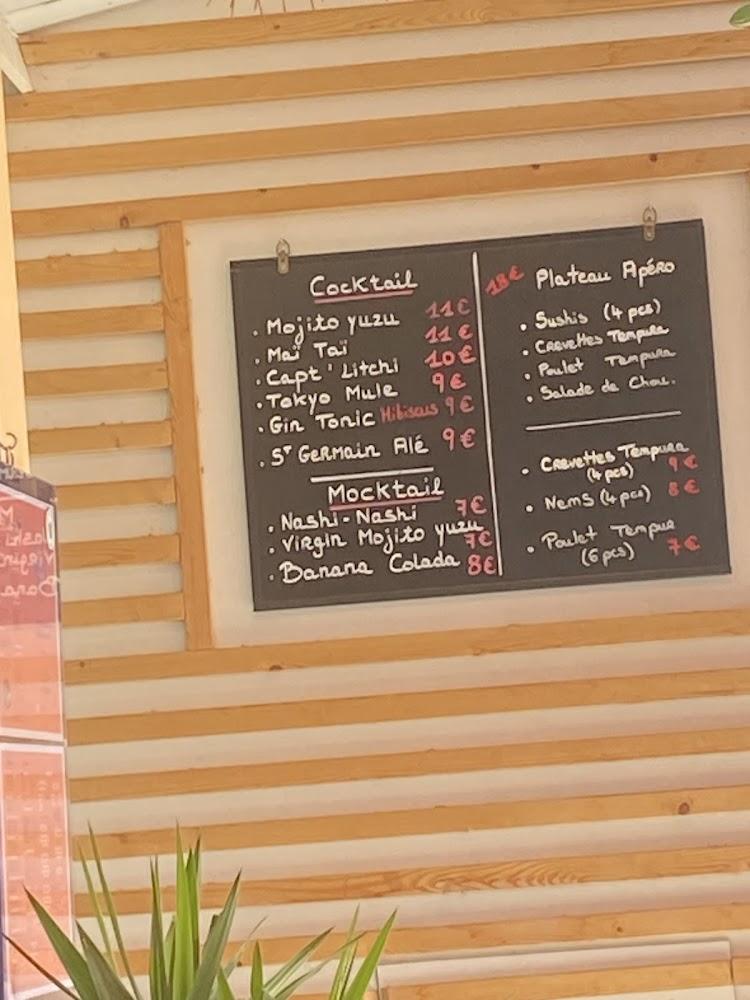 Cocktail
. Mojito yuzu 11€
. Maï Taï 11€
. Capt' Litchi 10€
. Tokyo Mule 9€
. Gin Tonic Hibiscus 9€
. ST GERMAIN Alé 9€
Mocktail
. Nashi-Nashi 7€
. Virgin Mojito yuzu 7€
. Banana Colada 8€
18€ Plateau Apéro
. Sushis (4 pcs)
. Crevettes Tempura
. Poulet Tempura
. Salade de Chou.
. Crevettes Tempura 9€
(4 pcs)
. Nems (4 pcs) 8€
. Poulet Tempura 7€
(6 pcs)